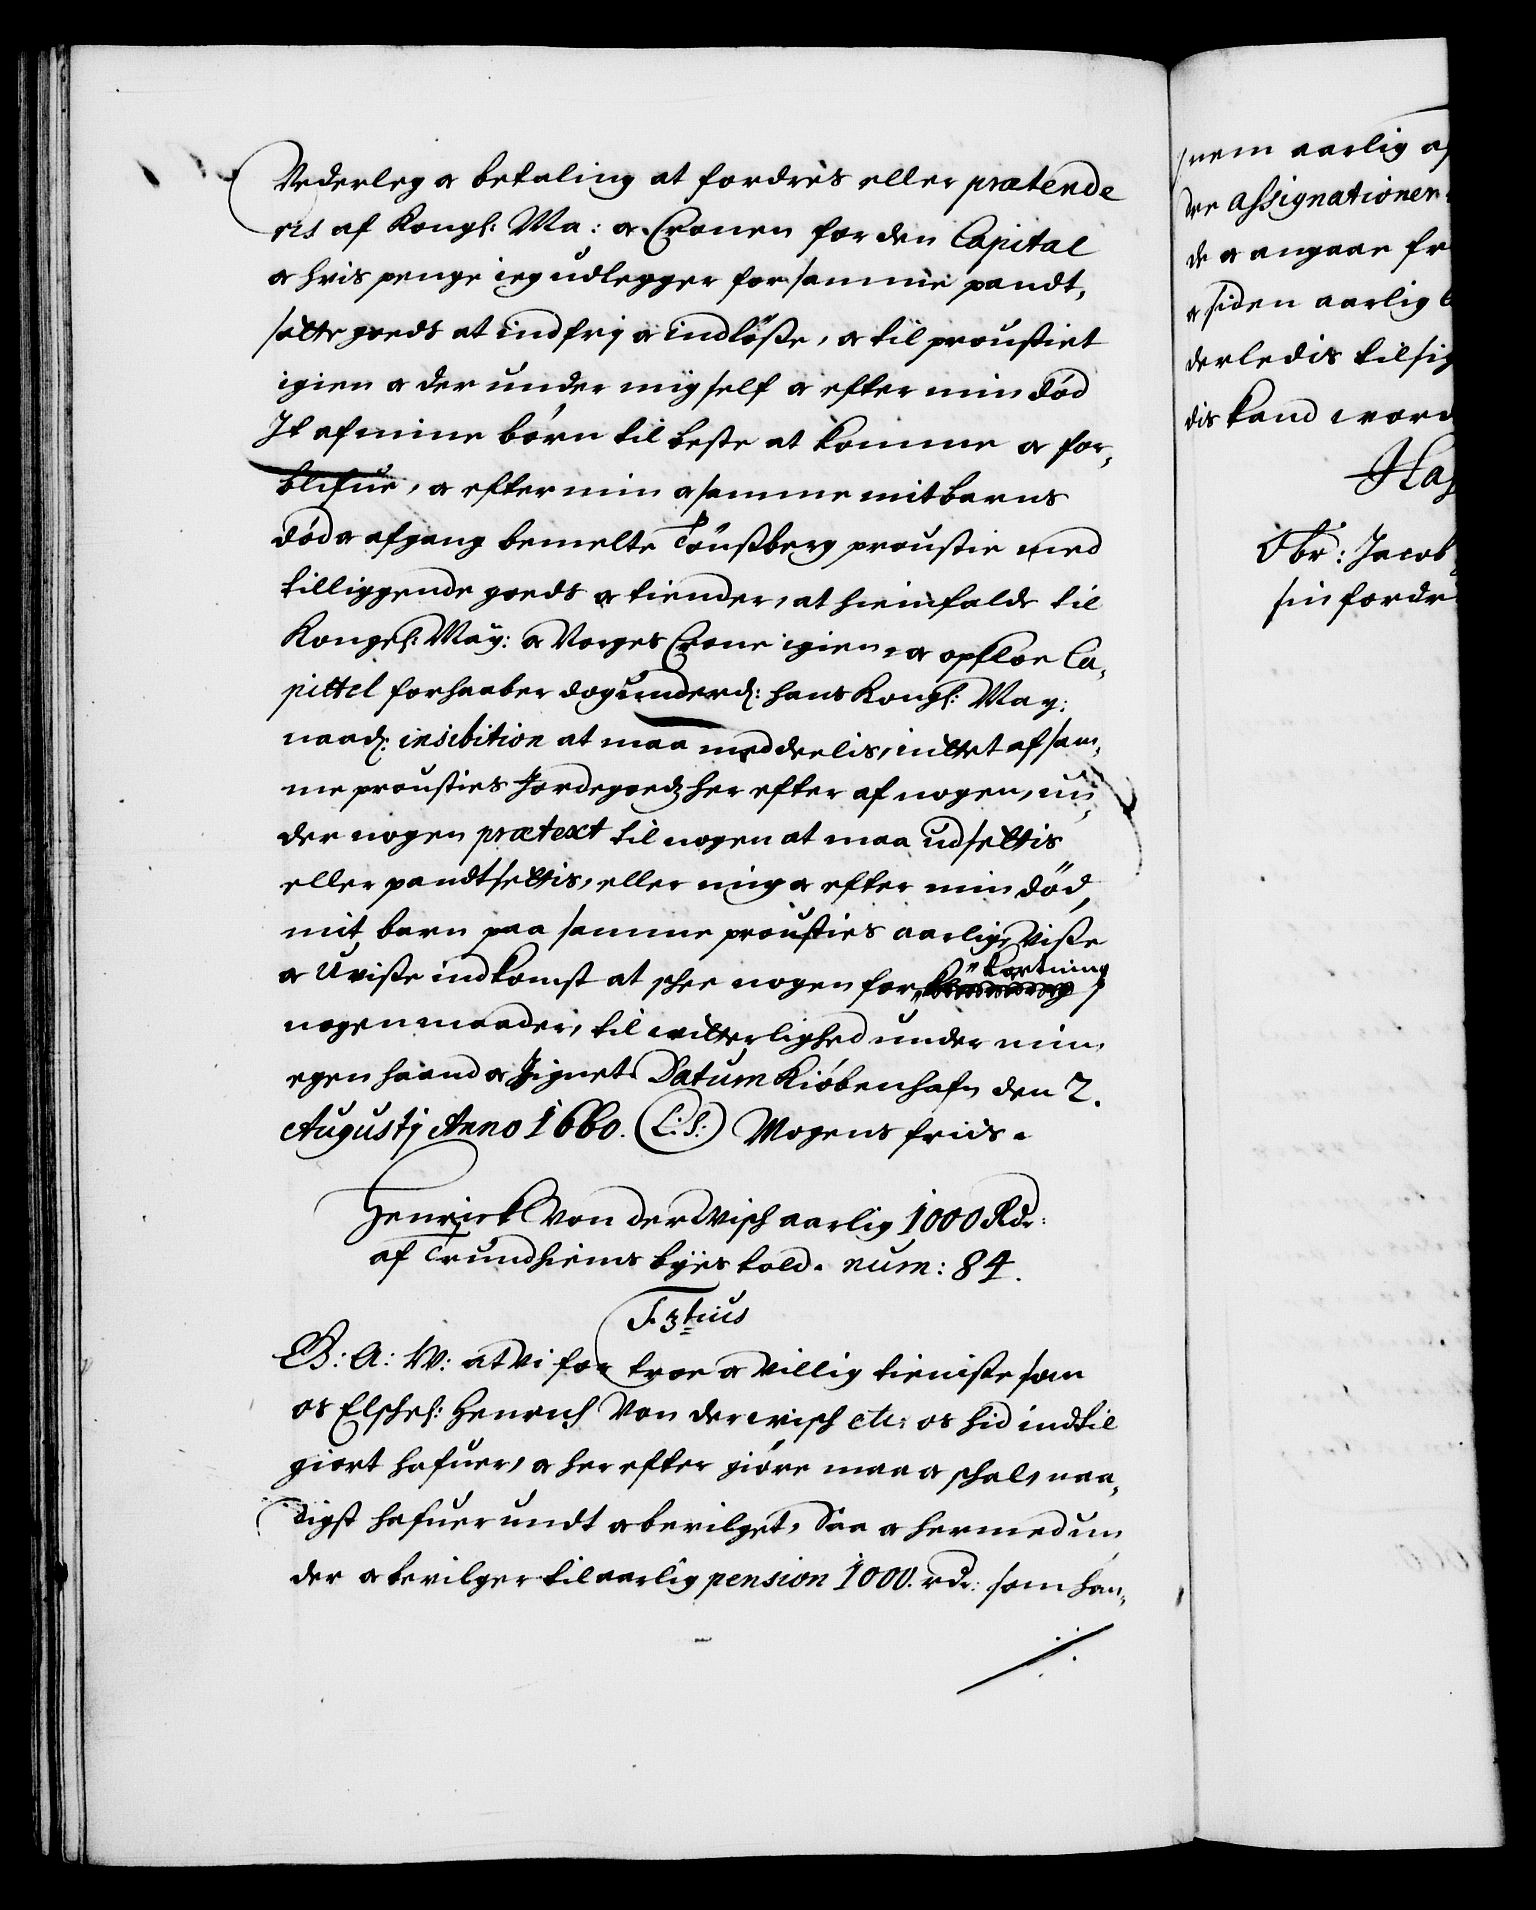 Vederleg og betaling at fordris eller prætende
ris af Kongl: Ma: og Cronen for den Capital
og hvis penge ieg udlegger for samme pandt,
satte goeds at indfrj og indløsse, og til proustiet
igien og der under mig self og efter min død
It af mine børn til beste at komme og for,
blifue, og efter min og samme mit barns
død og afgang bemelte Tønsberg proustie med
tilliggende goeds og tiender, at hiemfalde til
Kongel: May: og Norges Crone igien, og opsloe Ca,
pittel forhaaber dog underd: hans Kongl: May:
naad: inhibition at maa meddeelis, intet af sam,
me prousties Jordegoedz her efter af nogen, un,
der nogen prætext til nogen at maa udsettis
eller pandtsettis, eller mig og efter min død,
mit barn paa samme prousties aarlige visse
og Uvisse indkomst at schee nogen forkortning j
nogen maader, til vitterlighed under min
egen haand og Zignet. Datum Kiøbenhafn den 2.
Augustj Anno 1660. (L: S:) Mogens friis.
Henrick Von der Wisch aarlig 1000 Rdr:
af Trundhiems byes told. num: 84.
F. 3tius
G: A: W: at Vi for troe og Villig tieniste som
os Elschel: Henrich Von der wisch etc: os hid indtil
giort hafuer, og her efter giøre maa og schal, naa,
digst hafuer undt og bevilget, Saa og hermed un,
der og bevilger til aarlig pension 1000. rdr: som han,
nem aarlig af
dre assignationer
de og angaar fr
og siden aarlig
derledis tilsig
dis kand vord
Haf
Obr: Jacob
sin fordr